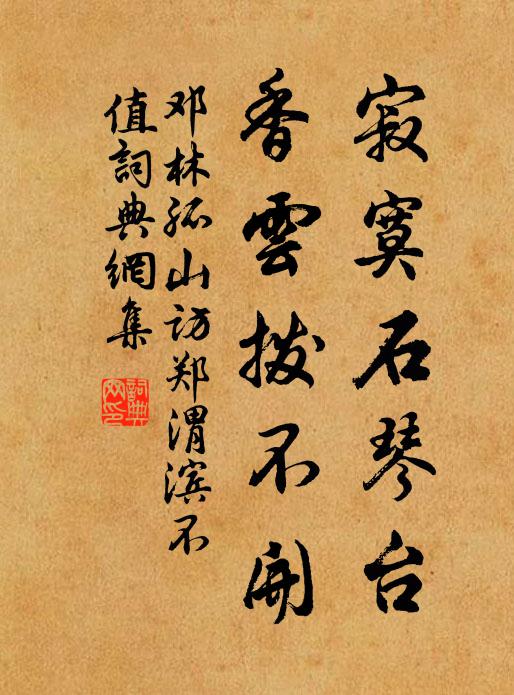 寂寞石琴台
香雲撥不開
邓林孤山访郑渭滨不
值詞典網集
詞典網印